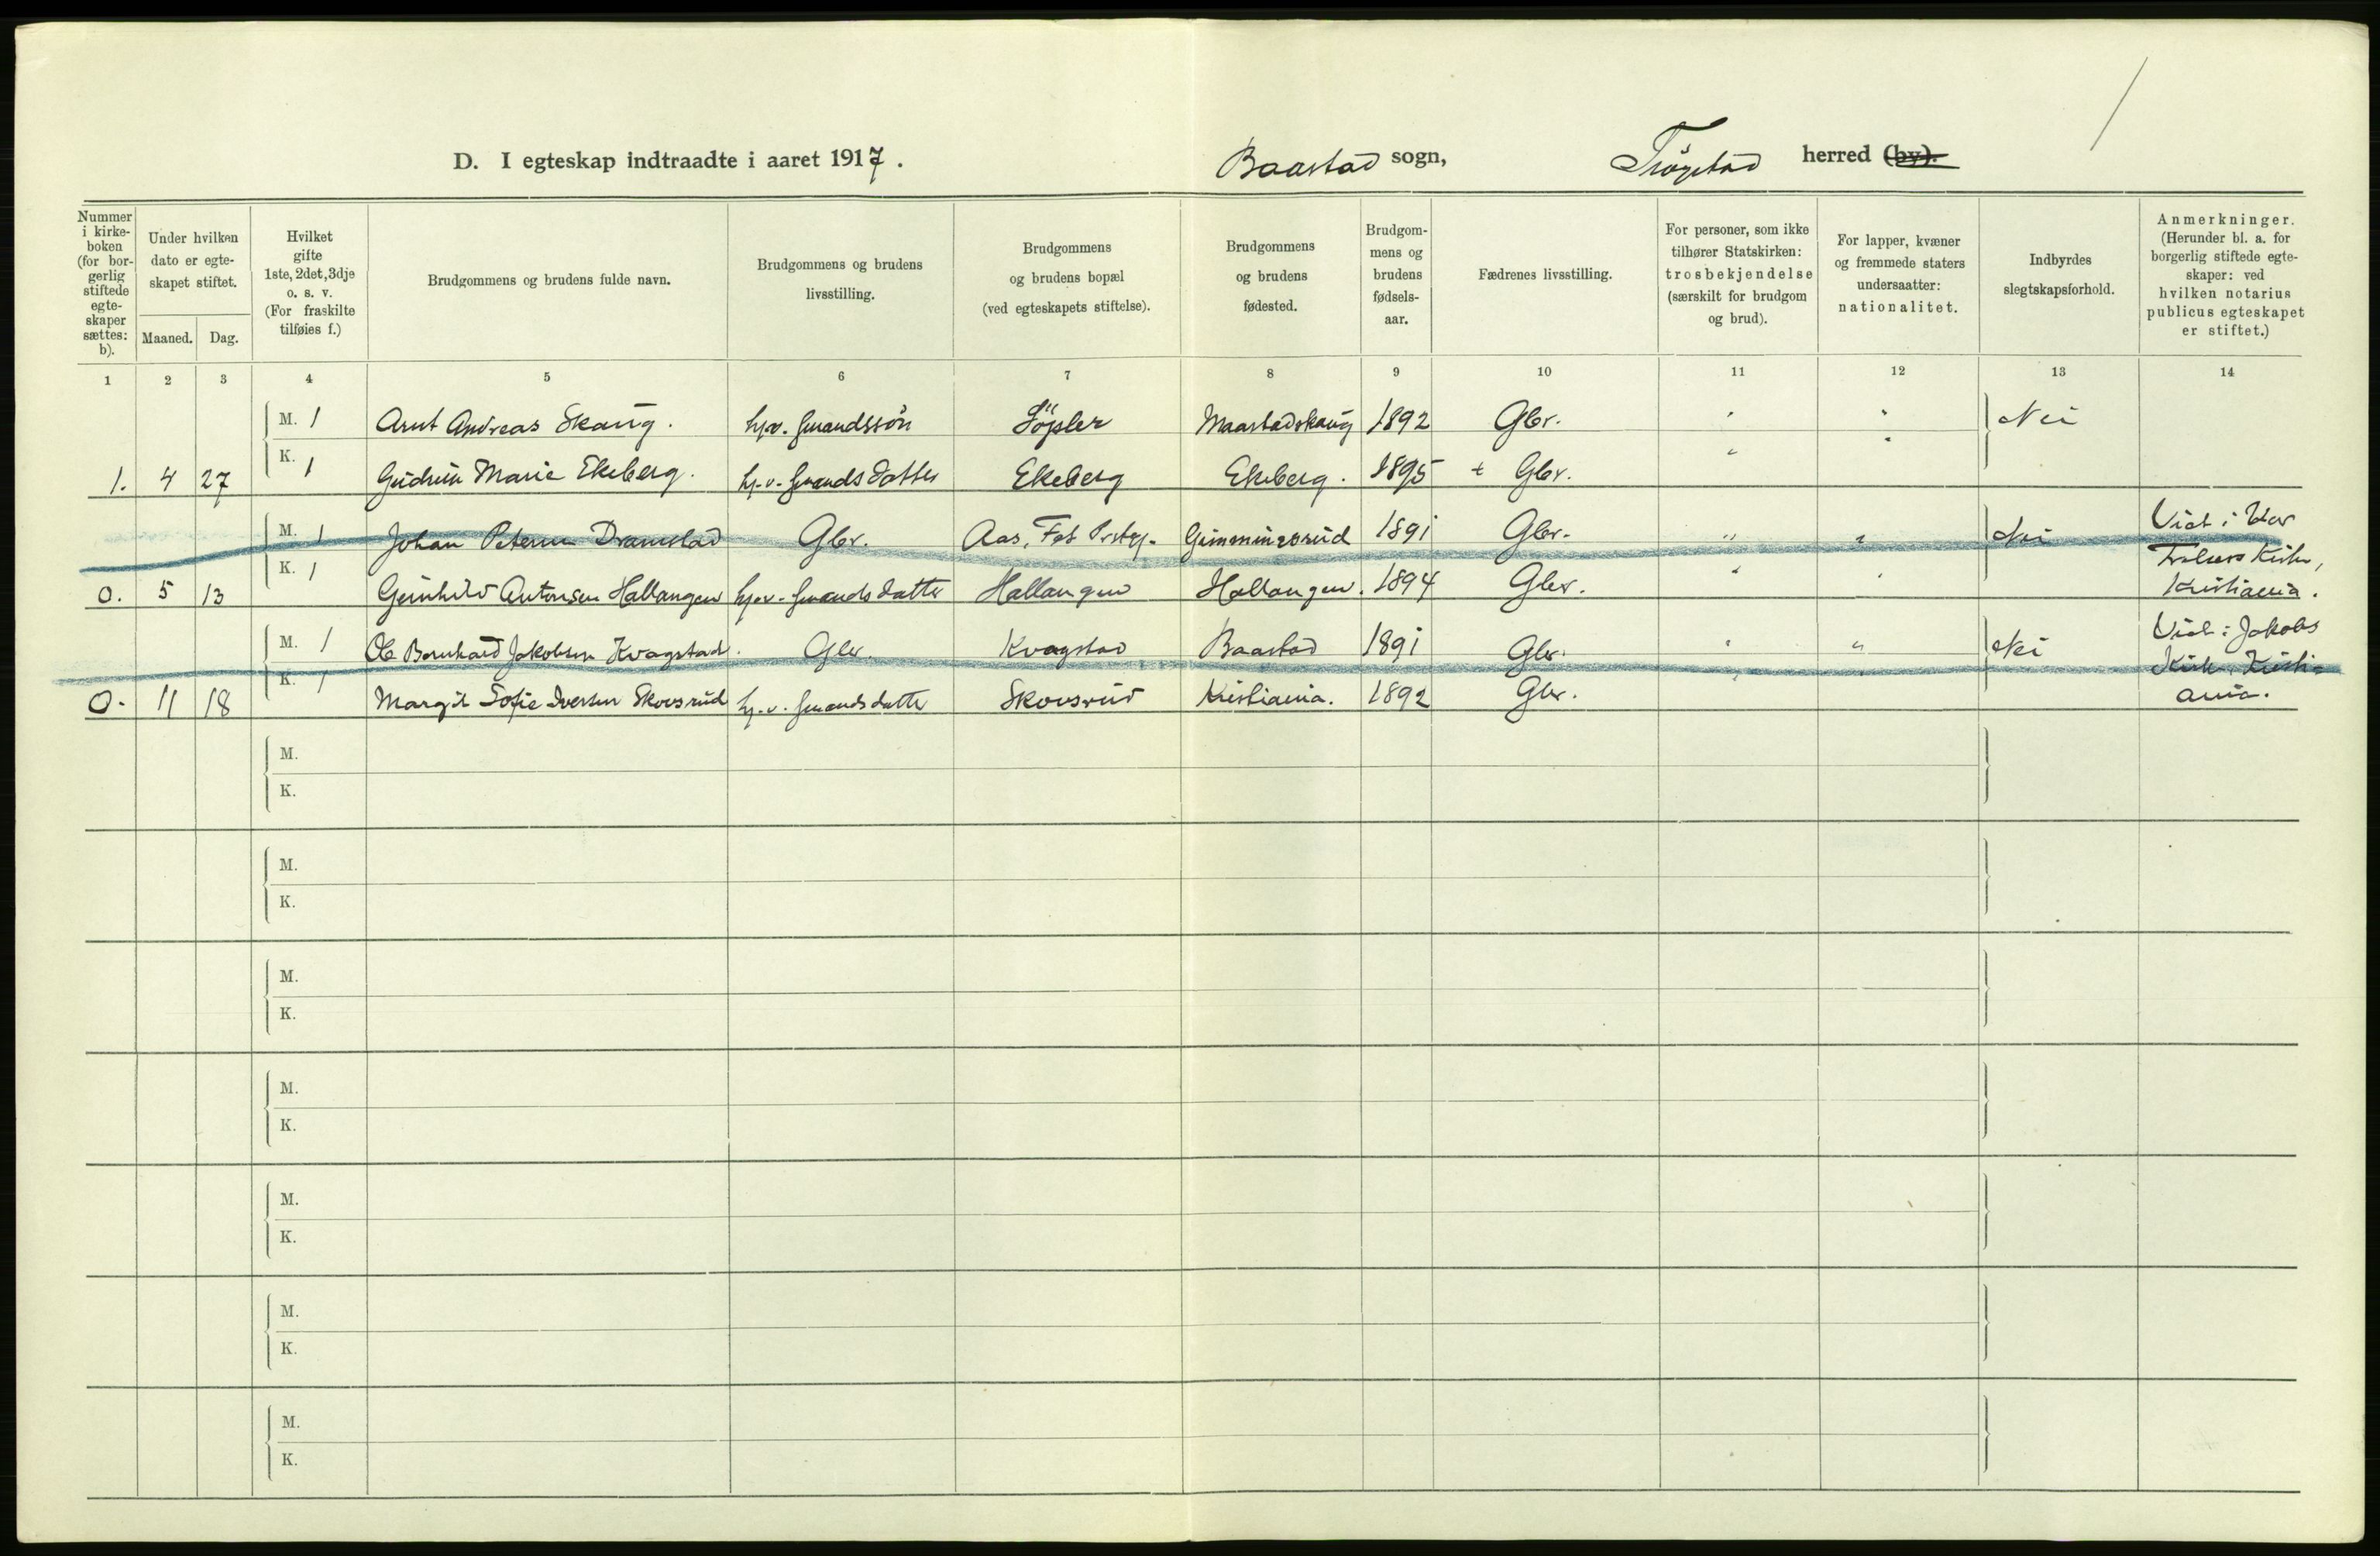 D. I egteskap indtraadte i aaret 1917.
Baastad sogn, Trøgstad herred (by).
Nummer i kirke-boken (for bor-gerlig stiftede egte-skaper sættes: b).
Under hvilken dato er egte-skapet stiftet.
Maaned. Dag.
Hvilket gifte 1ste, 2det, 3dje o. s. v. (For fraskilte tilføies f.)
Brudgommens og brudens fulde navn.
Brudgommens og brudens livsstilling.
Brudgommens og brudens bopæl (ved egteskapets stiftelse).
Brudgommens og brudens fødested.
Brudgom-mens og brudens fødsels-aar.
Fædrenes livsstilling.
For personer, som ikke tilhører Statskirken: trosbekjendelse (særskilt for brudgom og brud).
For lapper, kvæner og fremmede staters undersaatter: nationalitet.
Indbyrdes slegtskapsforhold.
Anmerkninger. (Herunder bl. a. for borgerlig stiftede egte-skaper: ved hvilken notarius publicus egteskapet er stiftet.)
1 2 3 4 5 6 7 8 9 10 11 12 13 14
M. 1 Arnt Andreas Skaug. hj.v. gmandssøn Søpler Maastadskaug 1892 Gbr. " " Nei
1. 4 27 K. 1 Gudrun Marie Ekeberg. hj.v. gmandsdatter Ekeberg Ekeberg. 1895 + Gbr. " "
M. 1 Johan Petersen Dramstad Gbr. Aas, Fet Prstgj. Gimmingsrud 1891 Gbr. " " Nei Viet i
0. 5 13 K. 1 Gunhild Antonsen Hallangen hj.v. gmandsdatter Hallangen Hallangen. 1894 Gbr. " " Frelsers Kirke, Kristiania.
M. 1 Ole Bernhard Jakobsen Kvagstad. Gbr. Kvagstad Baastad 1891 Gbr. " " Nei Viet i Jakobs
0. 11 18 K. 1 Margit Sofie Iversen Skovsrud hj.v. gmandsdatter Skovsrud Kristiania. 1892 Gbr. " Kirke, Kristi-ania.
M.
K.
M.
K.
M.
K.
M.
K.
M.
K.
M.
K.
M.
K.